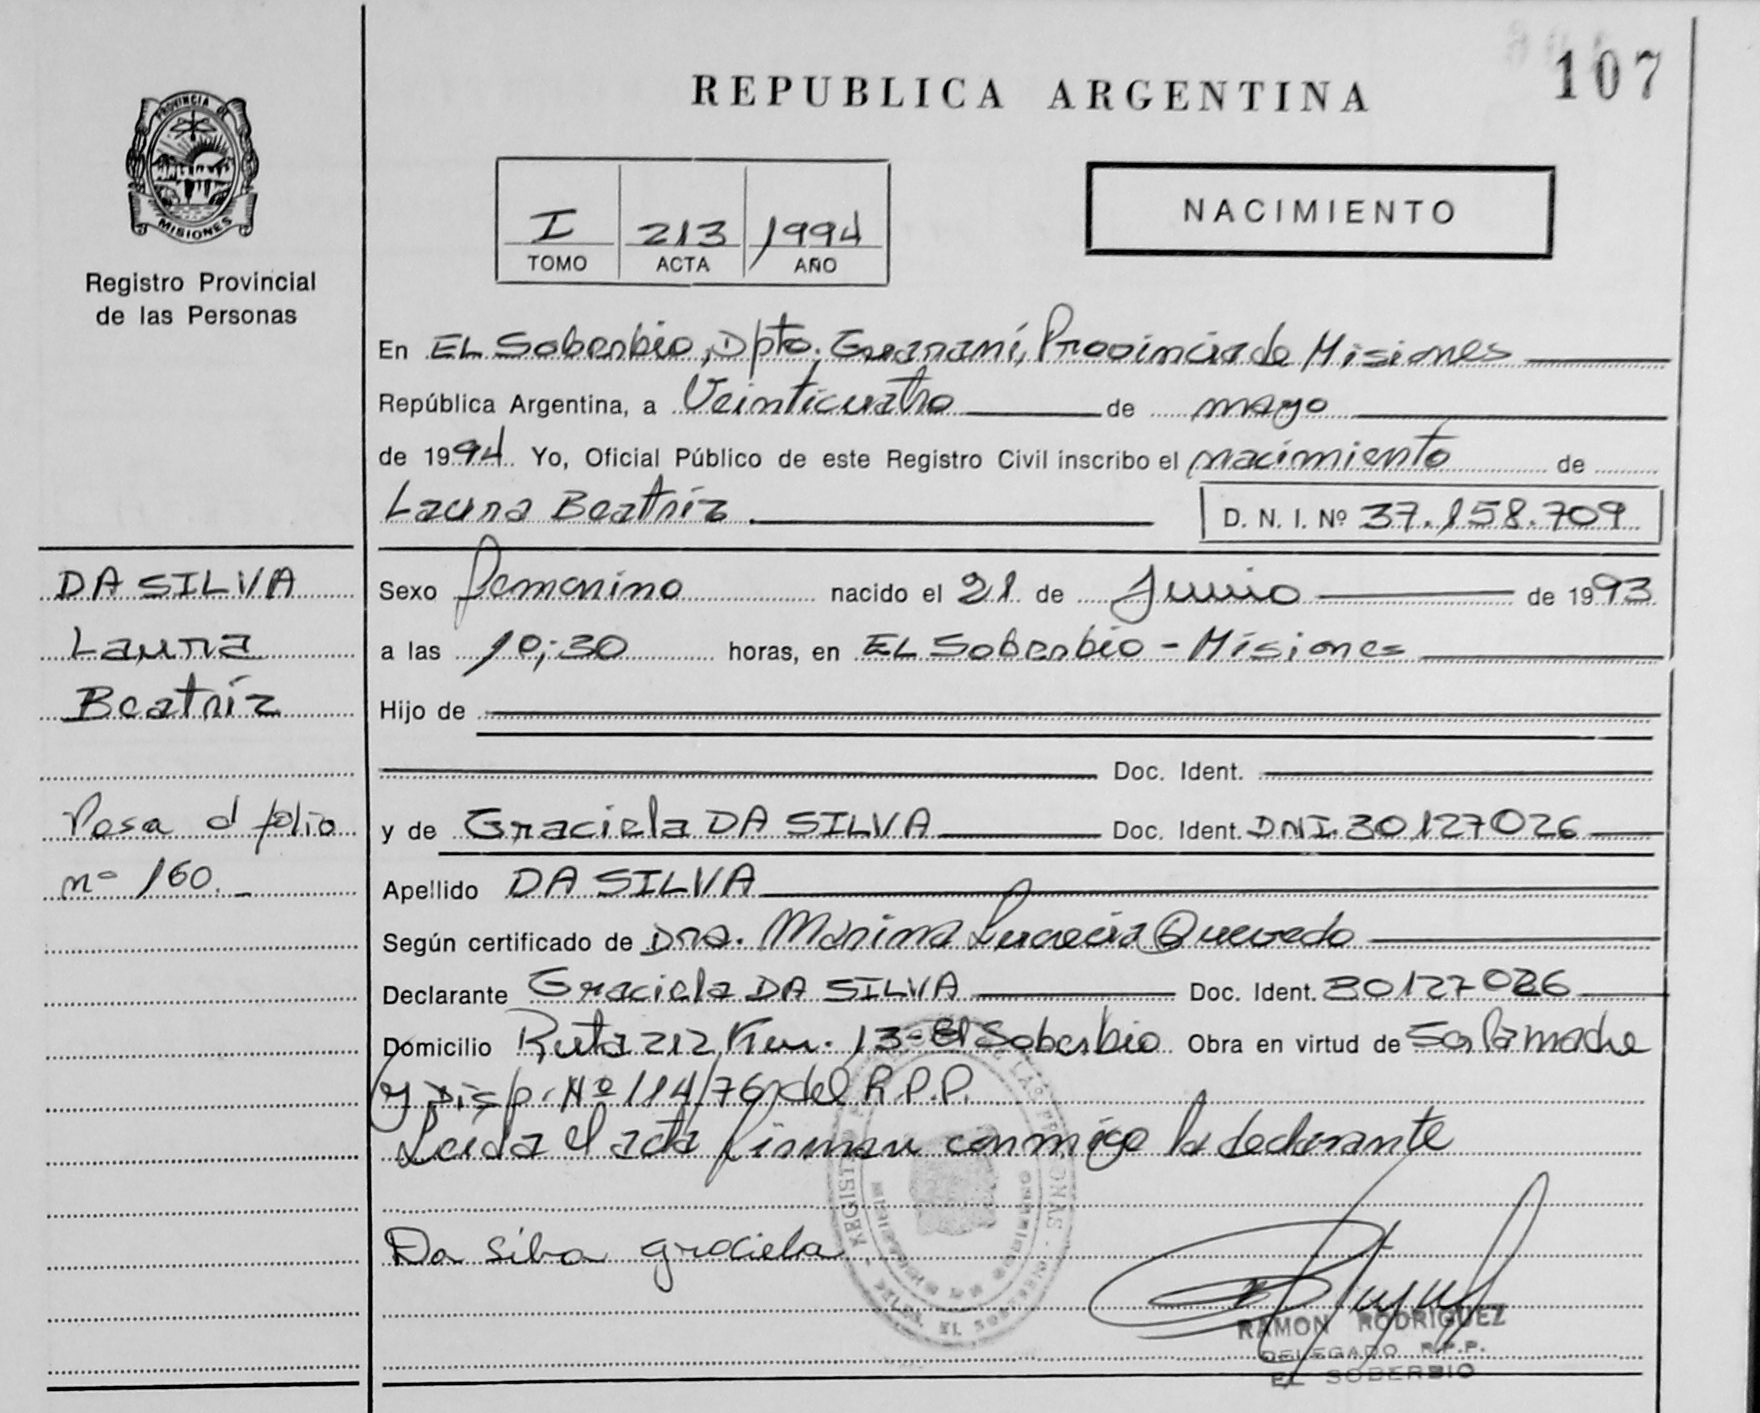 107
REPUBLICA ARGENTINA
PROVINCIA DE
MISIONES
Registro Provincial
de las Personas
I 213 1994
TOMO ACTA AÑO
NACIMIENTO
En EL Soberbio, Dpto. Guaraní, Provincia de Misiones
República Argentina, a Veinticuatro de mayo
de 1994. Yo, Oficial Público de este Registro Civil inscribo el nacimiento de
Laura Beatríz D. N. I. Nº 37.158.709
DA SILVA
Laura
Beatríz
Pasa al folio
nº 160.-
Sexo femenino nacido el 21 de Junio de 1993
a las 10;30 horas, en EL Soberbio - Misiones
Hijo de
Doc. Ident.
y de Graciela DA SILVA Doc. Ident. DNI. 30127026
Apellido DA SILVA
Según certificado de Dra. Marina Lucrecia Quevedo
Declarante Graciela DA SILVA Doc. Ident. 30127026
Domicilio Ruta 212 Km. 13-El Soberbio Obra en virtud de Ser la madre
y Disp. Nº 114/76 del R.P.P.
Leida el acta firman conmigo la declarante
Da silva graciela
RAMON RODRIGUEZ
DELEGADO R.P.P.
EL SOBERBIO